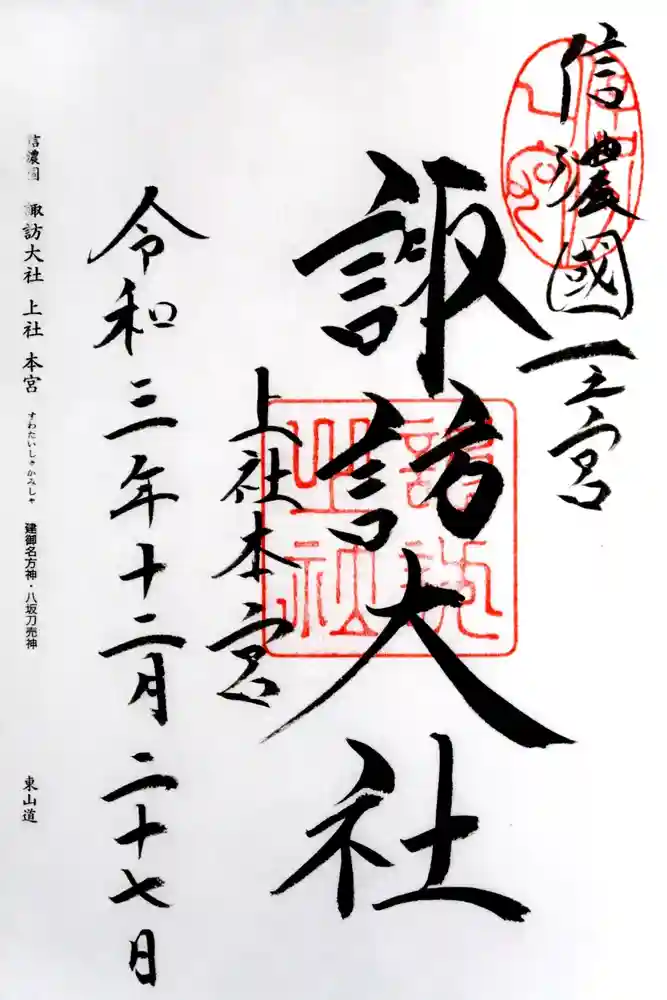 信濃國一之宮
諏訪大社
上社本宮
令和三年十二月二十七日
信濃国 諏訪大社 上社 本宮 すわたいしゃ かみしゃ 建御名方神・八坂刀売神 東山道
諏訪
大社